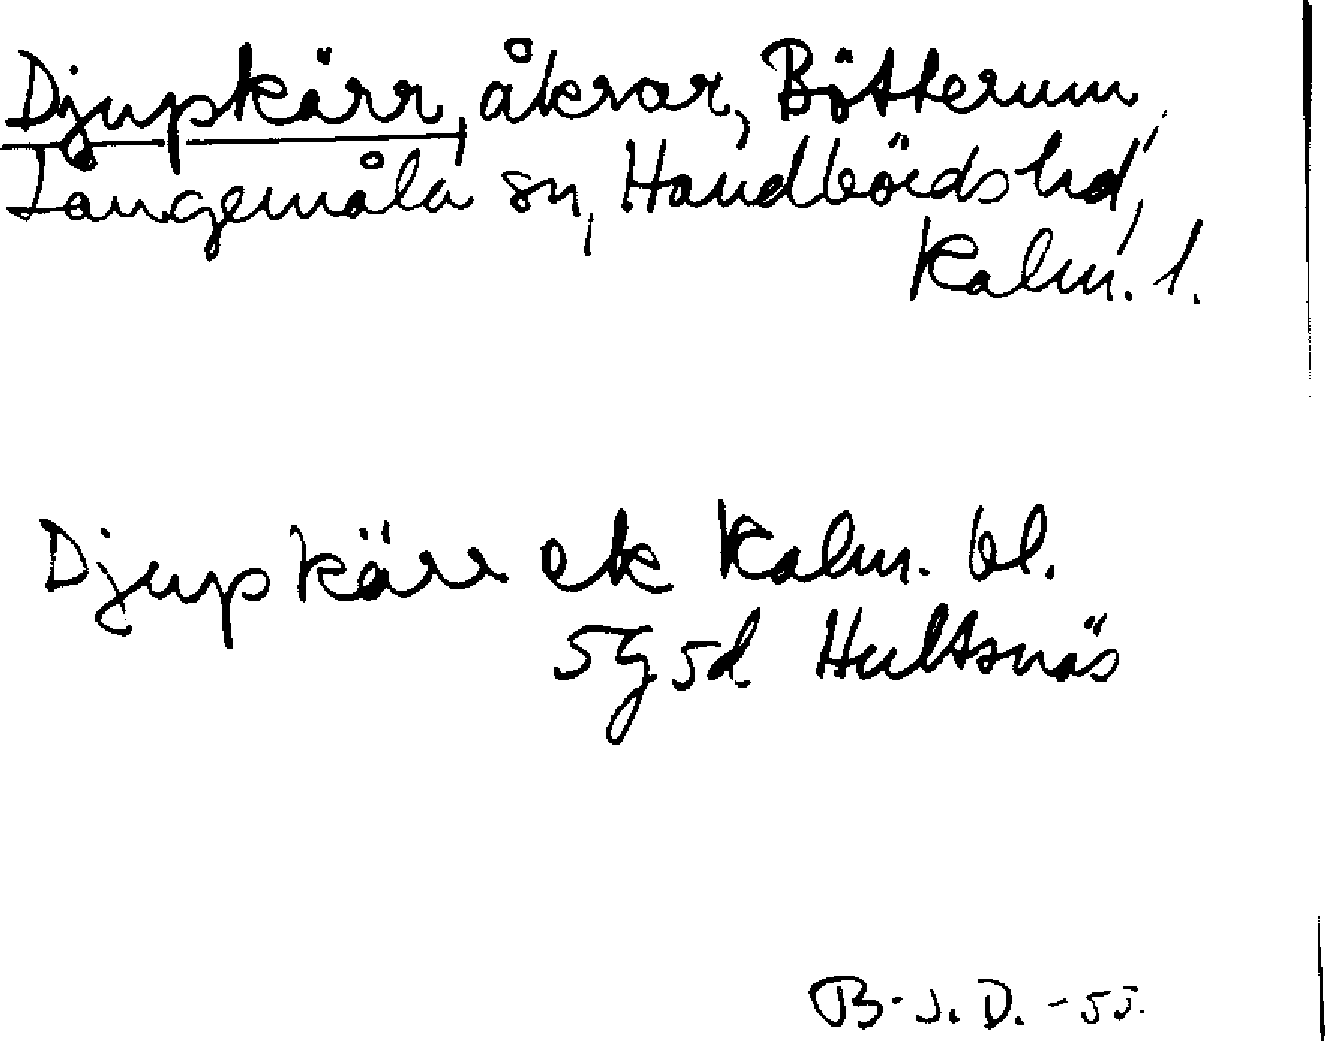 Djupkärr, åkrar, Bötterum,
Långemåla sn, Handbörds hd,
Kalm. l.
Djupkärr ek Kalm. bl.
5g5d Hultsnäs
B-J.D. -55.